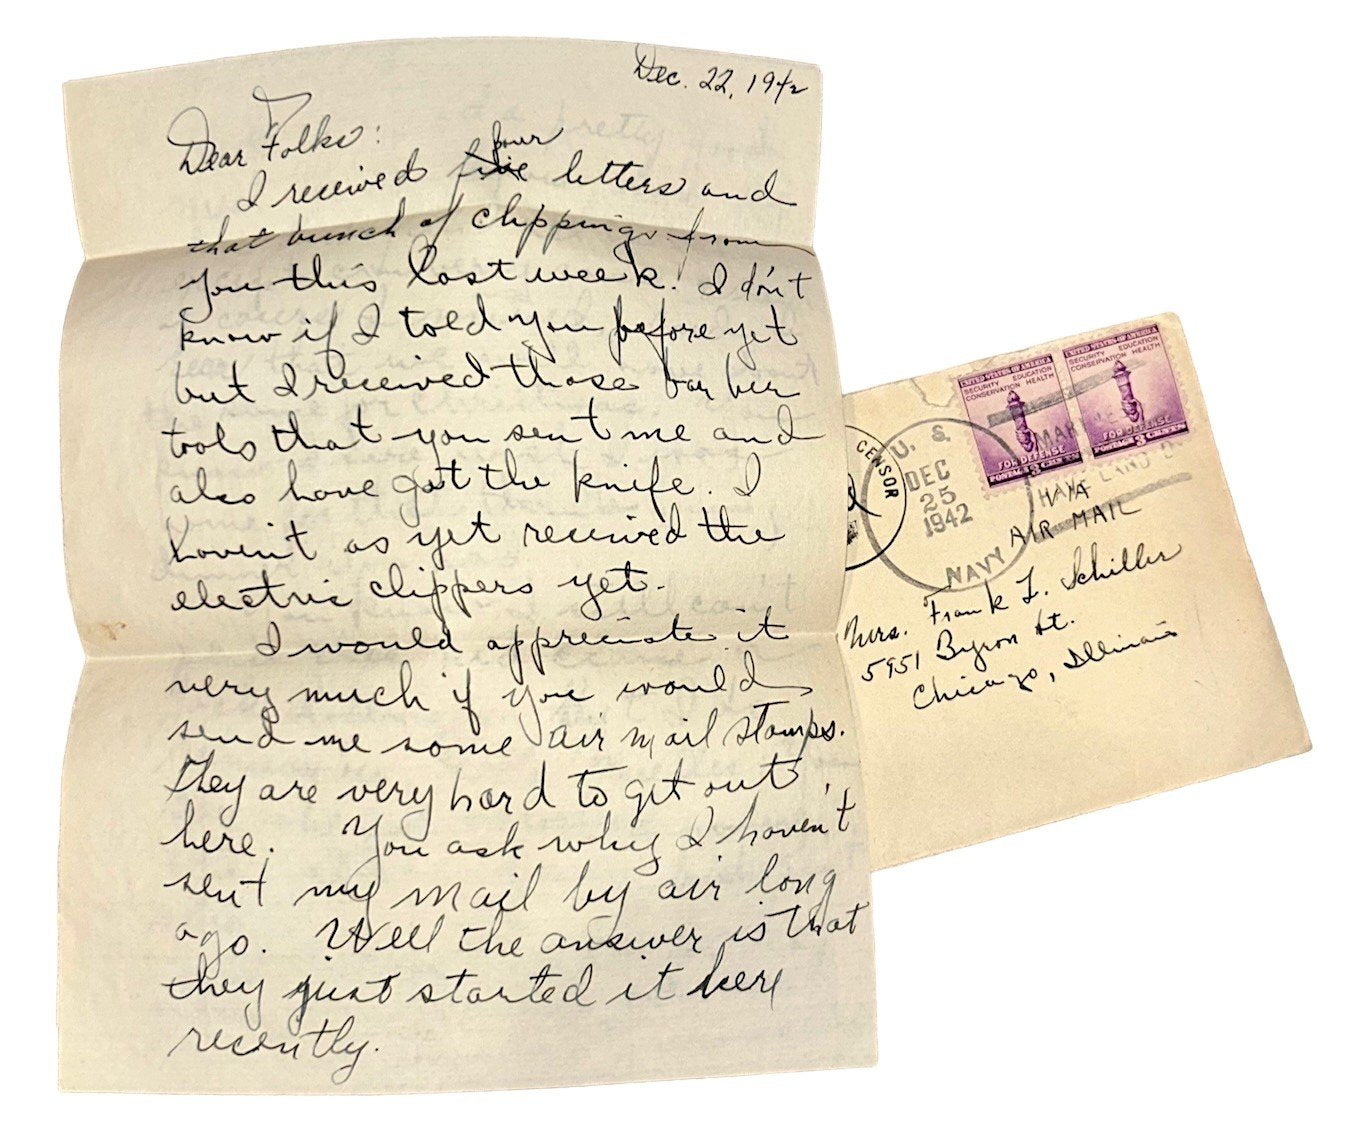 Dec. 22, 1942
Dear Folks:
four
I received five letters and
that bunch of clippings from
you this last week. I don't
know if I told you before yet
but I received those barber
tools that you sent me and
also have got the knife. I
haven't as yet received the
electric clippers yet.
I would appreciate it
very much if you would
send me some air mail stamps.
They are very hard to get out
here. You ask why I haven't
sent my mail by air long
ago. Well the answer is that
they just started it here
recently.
UNITED STATES OF AMERICA
SECURITY EDUCATION
CONSERVATION HEALTH
FOR DEFENSE
POSTAGE 3 CENTS
UNITED STATES OF AMERICA
SECURITY EDUCATION
CONSERVATION HEALTH
FOR DEFENSE
POSTAGE 3 CENTS
CENSOR
U. S.
DEC
25
1942
NAVY
VIA
AIR MAIL
Mrs. Frank L. Schiller
5951 Byron St.
Chicago, Illinois